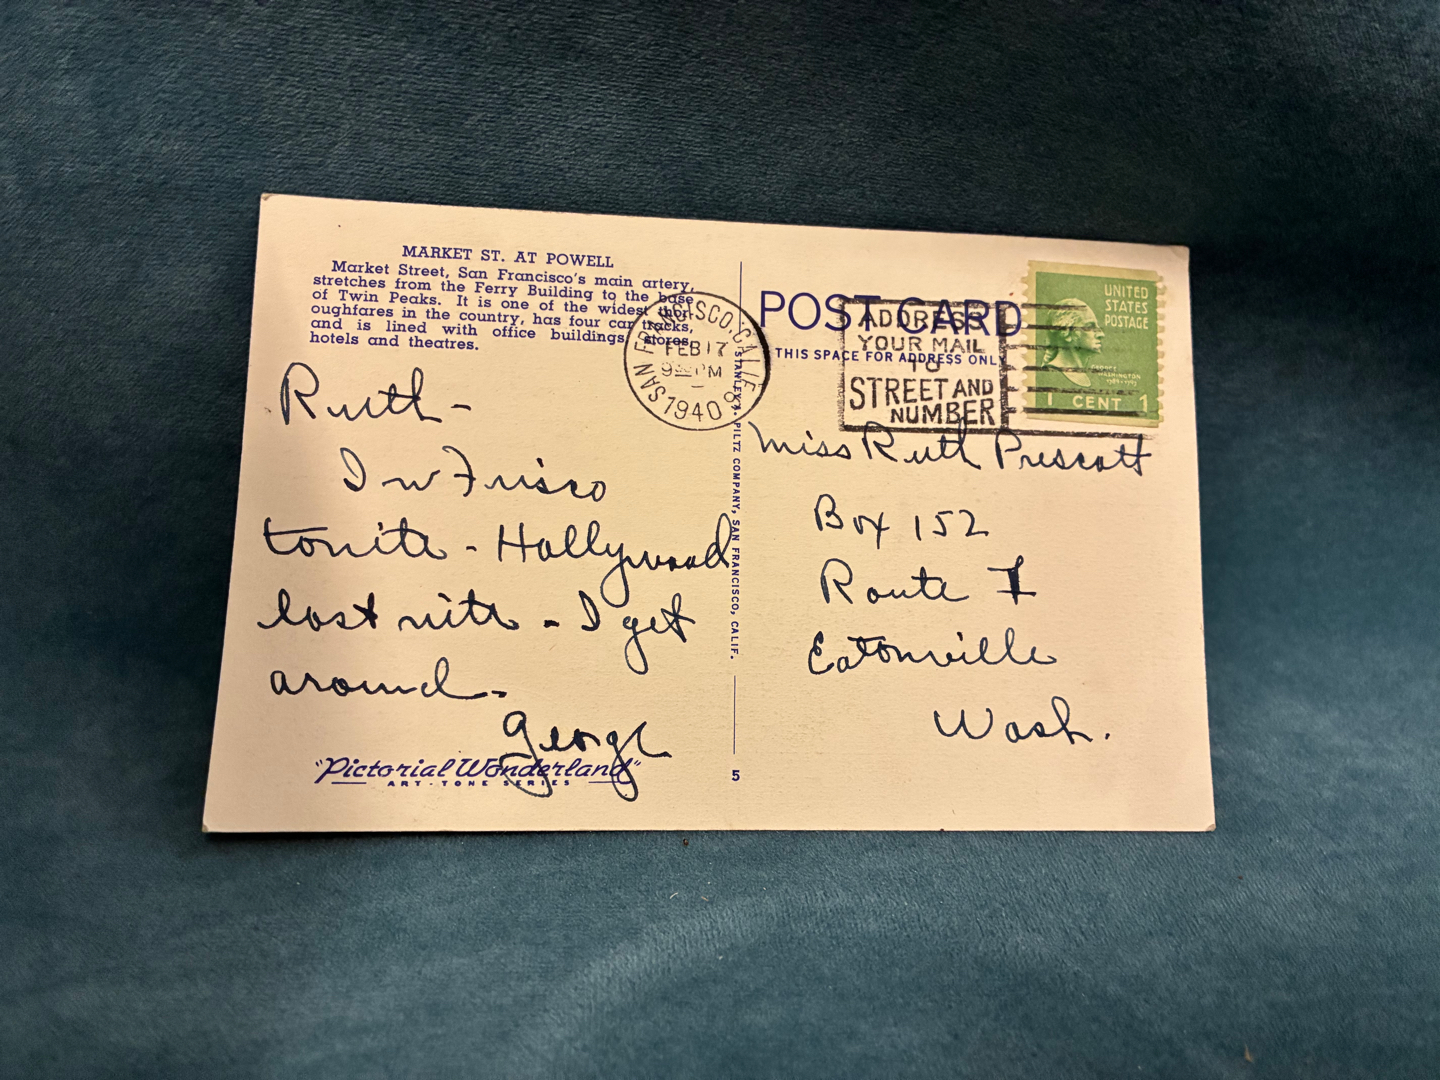 MARKET ST. AT POWELL
Market Street, San Francisco's main artery,
stretches from the Ferry Building to the base
of Twin Peaks. It is one of the widest thor
oughfares in the country, has four car tracks,
and is lined with office buildings, stores,
hotels and theatres.
Ruth -
In Frisco
tonite - Hollywood
last nite - I get
around -
George
"Pictorial Wonderland"
ART-TONE SERIES
SAN FRANCISCO, CALIF.
FEB 17
PM
1940
STANLEY A. PILTZ COMPANY, SAN FRANCISCO, CALIF.
5
POST CARD
THIS SPACE FOR ADDRESS ONLY
ADDRESS
YOUR MAIL
TO
STREET AND
NUMBER
UNITED
STATES
POSTAGE
GEORGE
WASHINGTON
1789-1797
1 CENT 1
Miss Ruth Prescott
Box 152
Route 1
Eatonville
Wash.